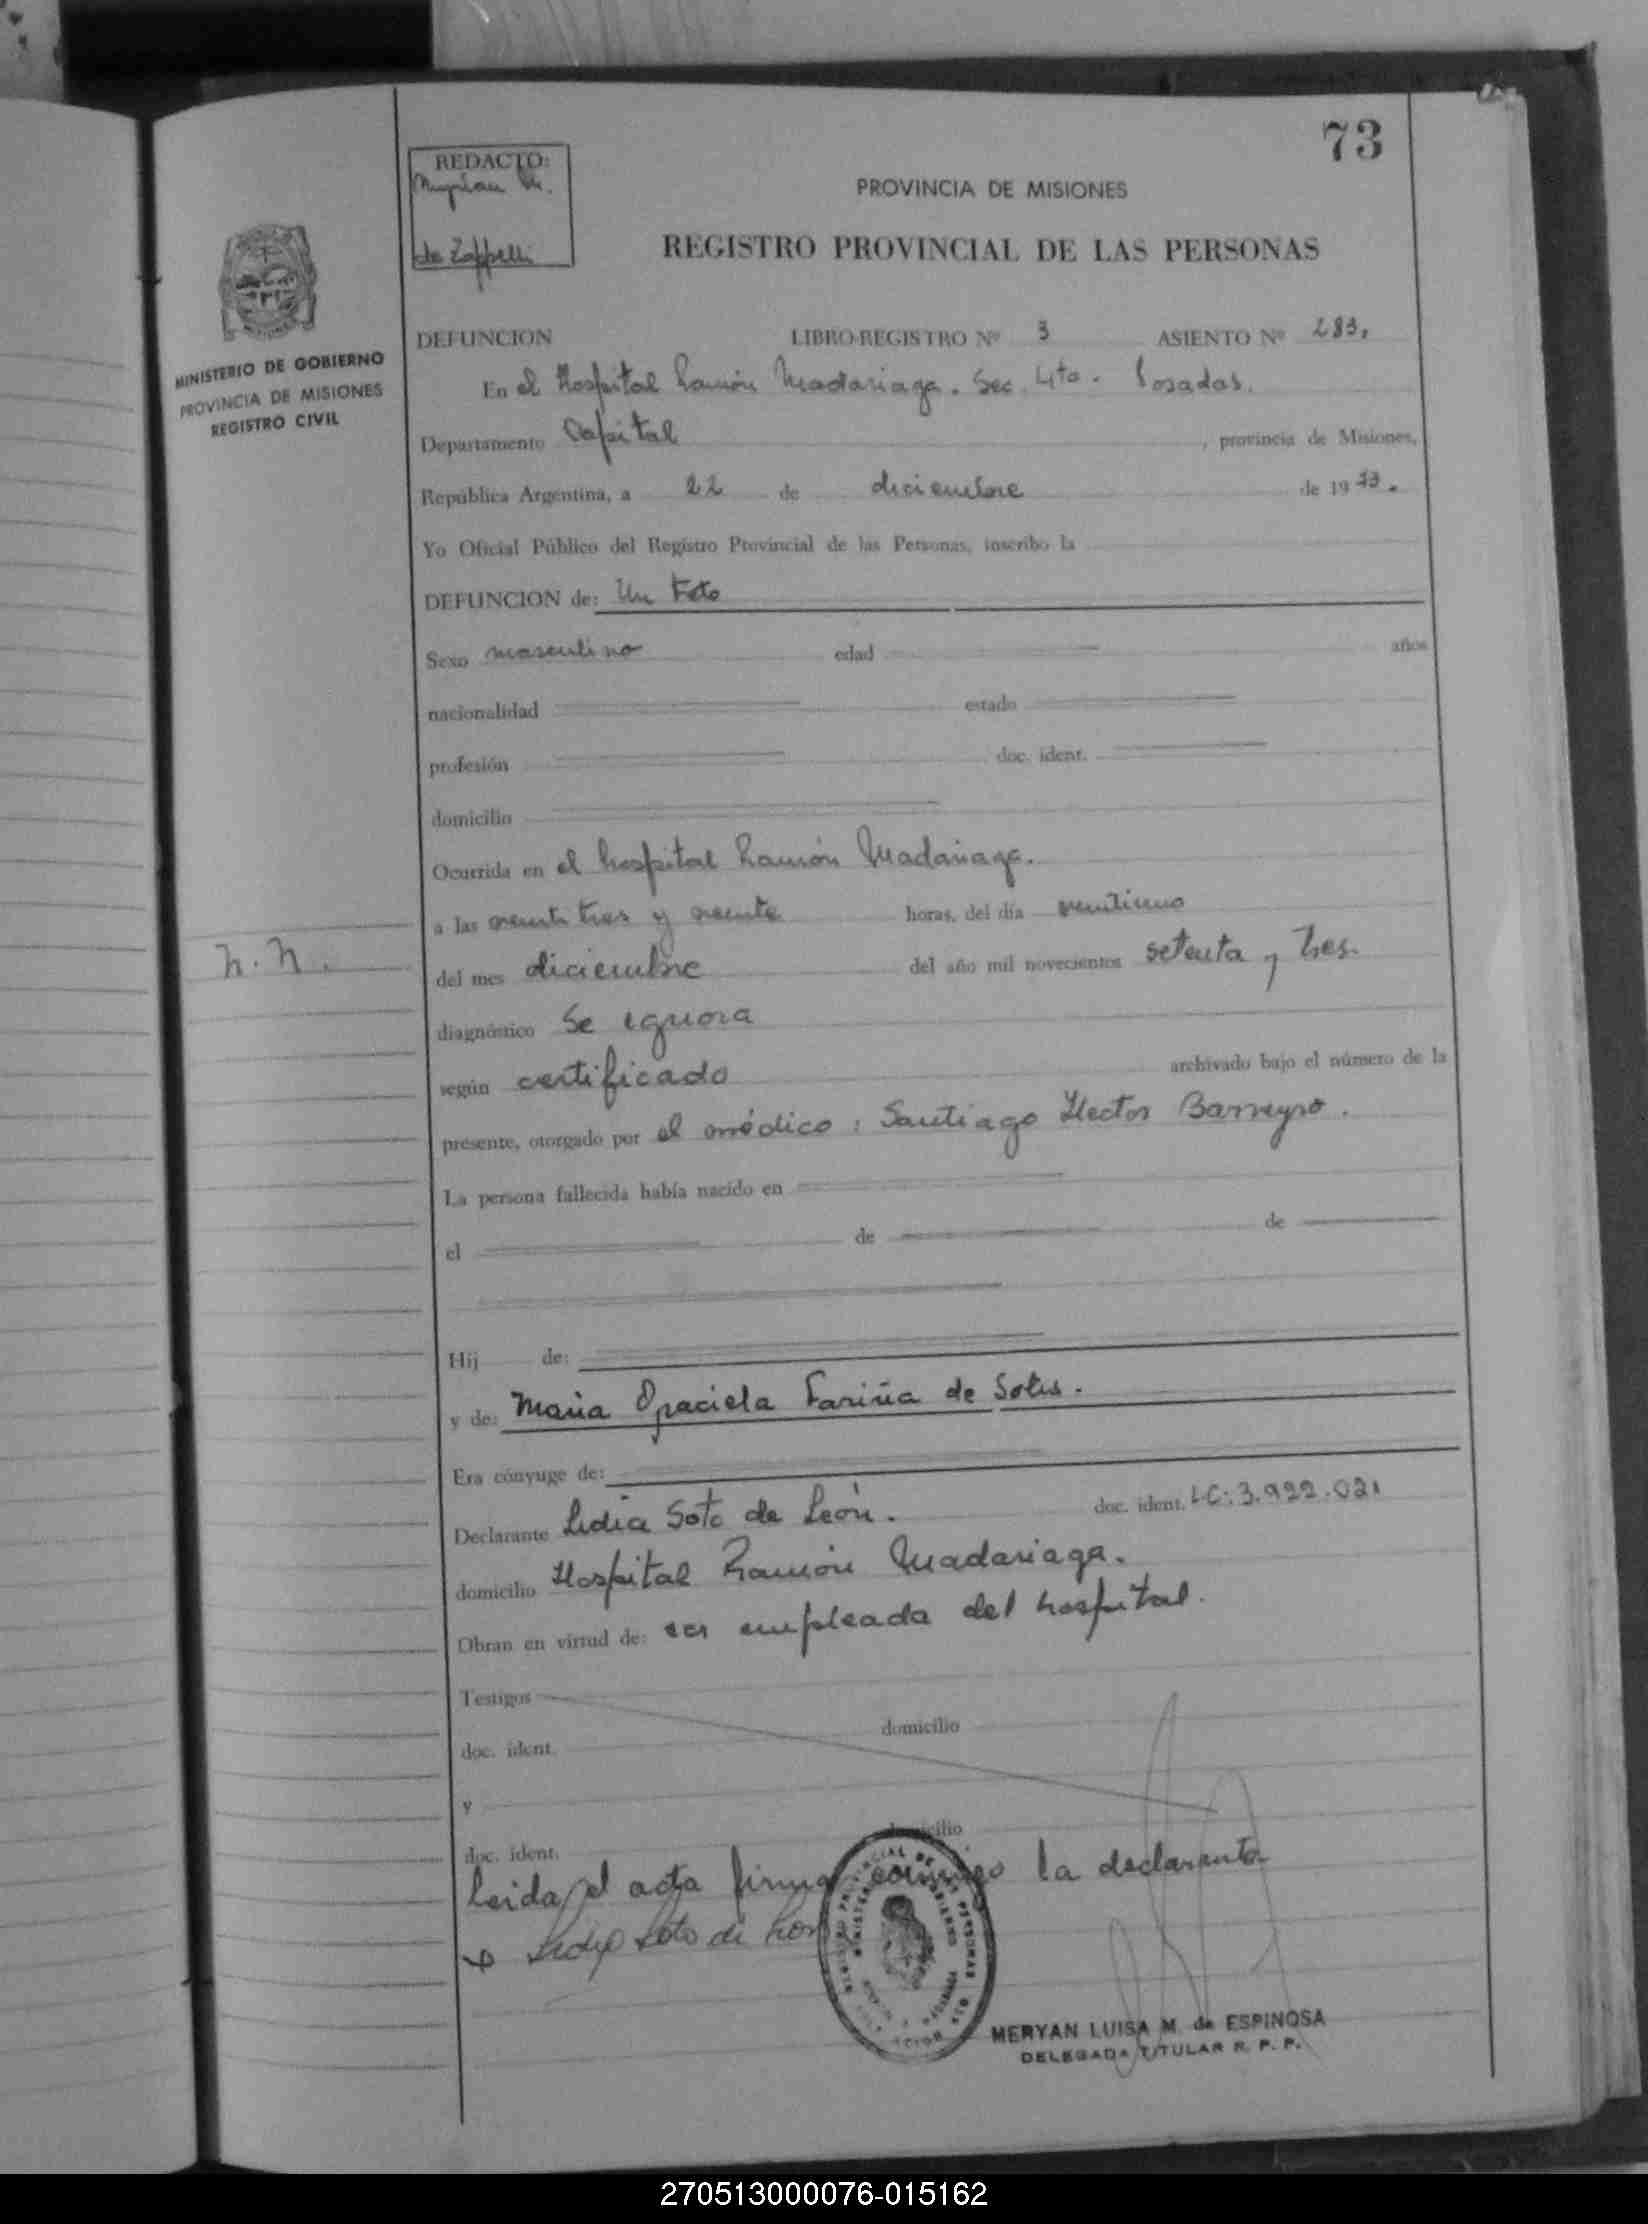 73
REDACTO:
de Zappelli
PROVINCIA DE MISIONES
REGISTRO PROVINCIAL DE LAS PERSONAS
MINISTERIO DE GOBIERNO
PROVINCIA DE MISIONES
REGISTRO CIVIL
DEFUNCION LIBRO-REGISTRO Nº 3 ASIENTO Nº 283,
En el Hospital Ramón Madariaga. Sec. 4ta. Posadas.
Departamento Capital , provincia de Misiones,
República Argentina, a 22 de diciembre de 1973.
Yo Oficial Público del Registro Provincial de las Personas, inscribo la
DEFUNCION de: Un Feto
Sexo masculino edad años
nacionalidad estado
profesión doc. ident.
domicilio
Ocurrida en el hospital Ramón Madariaga.
a las veinti tres y veinte horas, del día veintiuno
N.N.
del mes diciembre del año mil novecientos setenta y tres.
diagnóstico Se ignora
según certificado archivado bajo el número de la
presente, otorgado por el médico: Santiago Hector Barreyro.
La persona fallecida había nacido en
el de de
Hij de:
y de: Maria Graciela Fariña de Sotis.
Era cónyuge de:
Declarante Lidia Soto de León. doc. ident. L.C: 3.922.021
domicilio Hospital Ramón Madariaga.
Obran en virtud de: ser empleada del hospital.
Testigos
doc. ident. domicilio
y
doc. ident. domicilio
leida el acta firma conmigo la declarante
Soto de
MERYAN LUISA M. de ESPINOSA
DELEGADA TITULAR R. P. P.
270513000076-015162